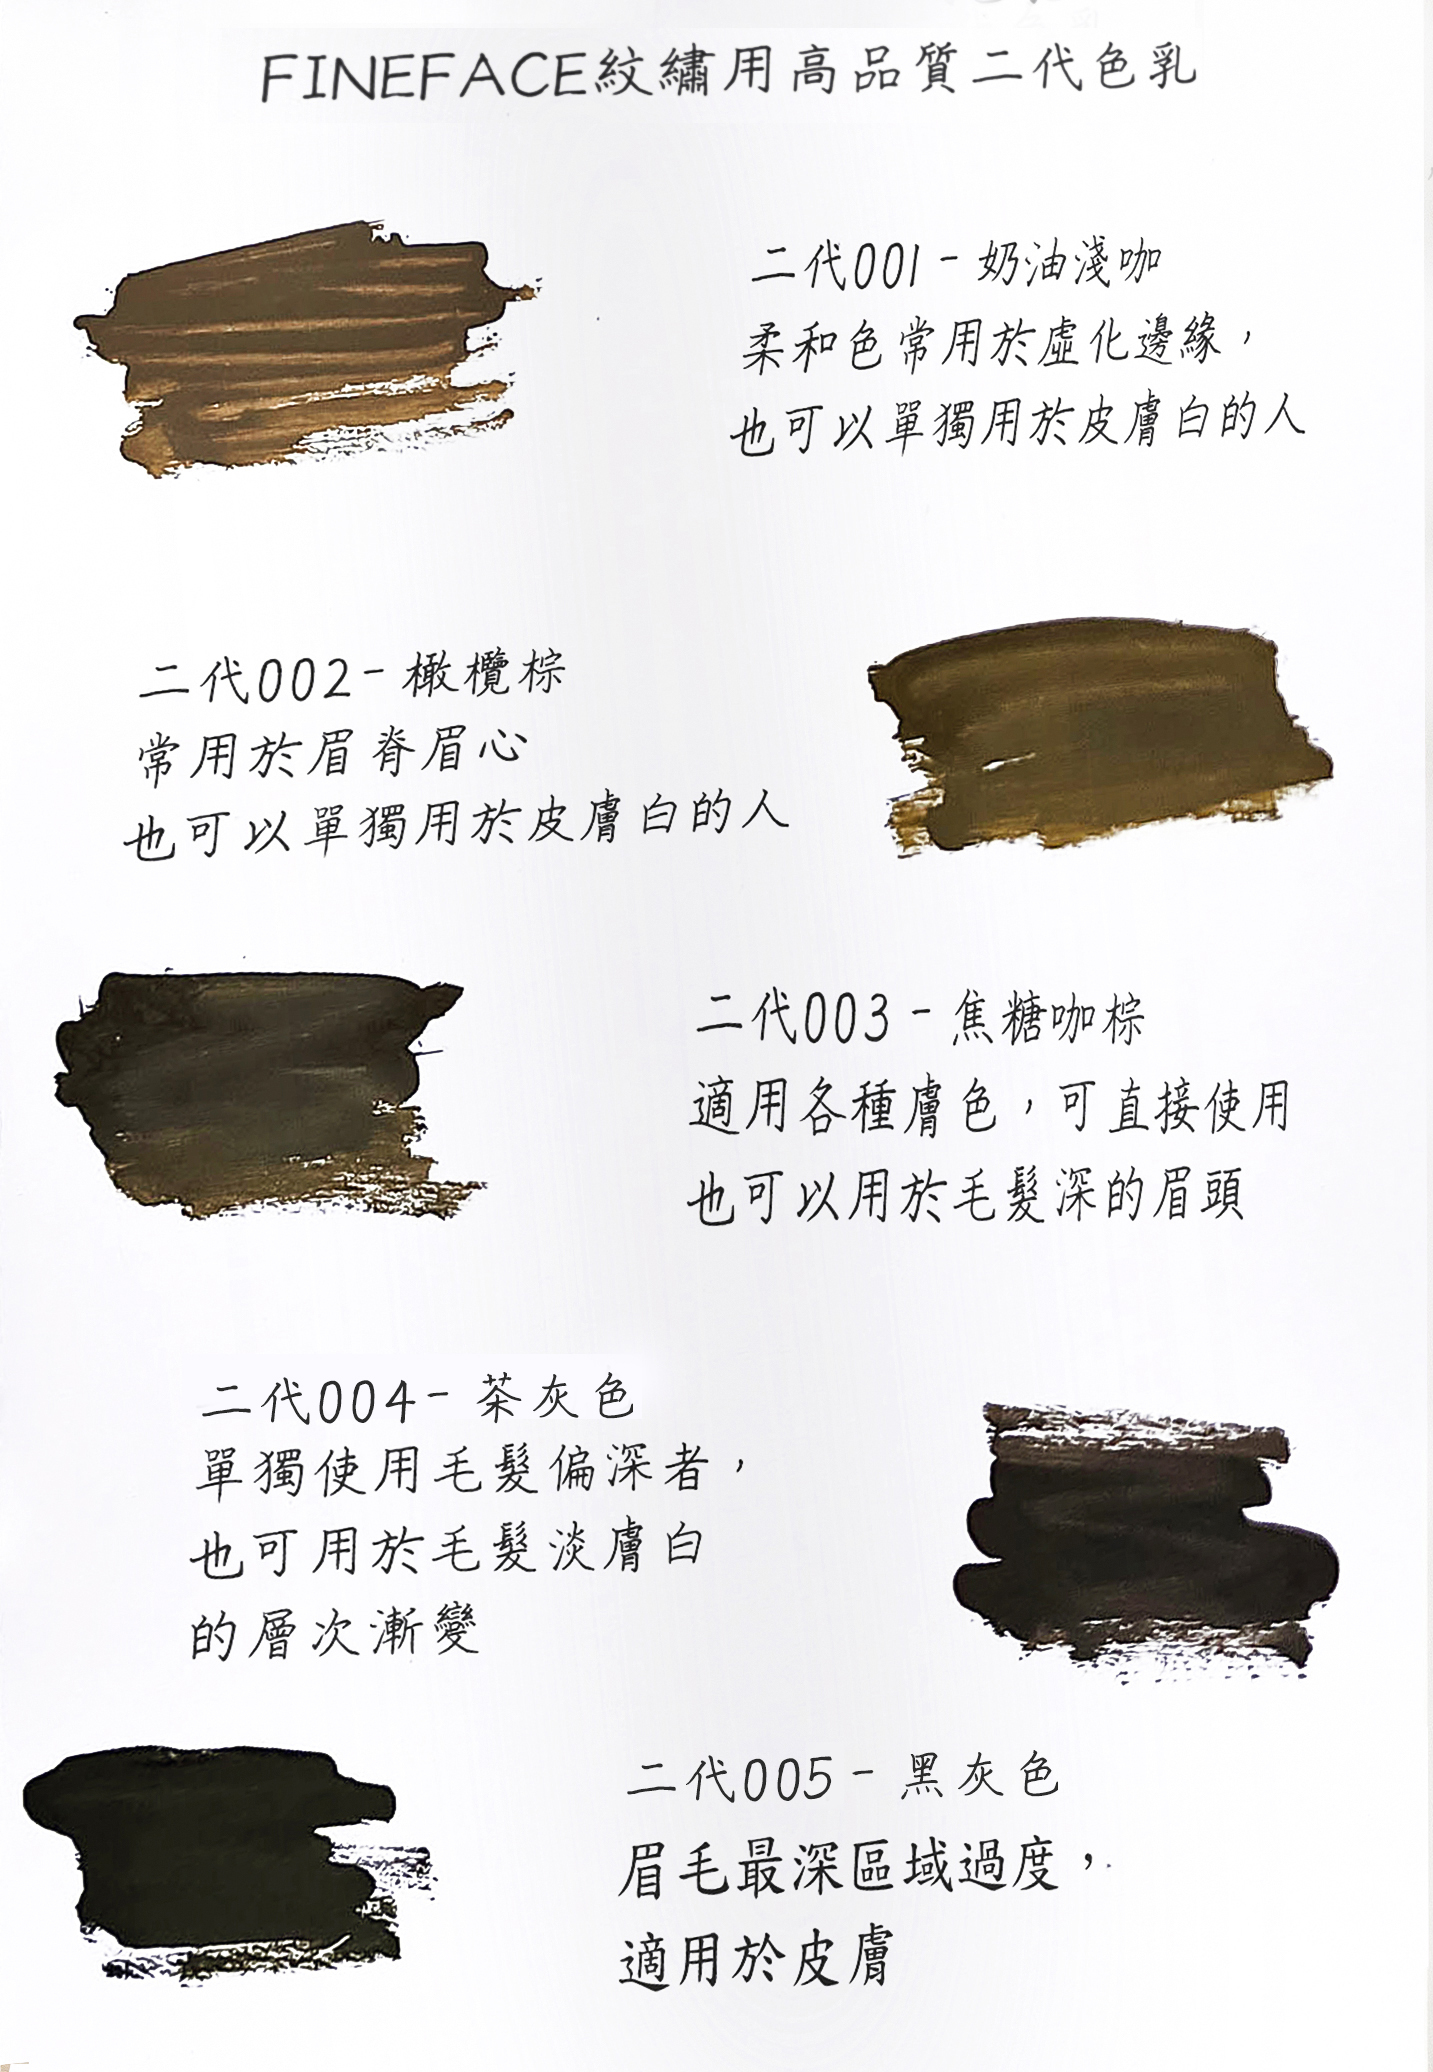 FINEFACE紋繡用高品質二代色乳
二代001-奶油淺咖
柔和色常用於虛化邊緣，
也可以單獨用於皮膚白的人
二代002-橄欖棕
常用於眉脊眉心
也可以單獨用於皮膚白的人
二代003-焦糖咖棕
適用各種膚色，可直接使用
也可以用於毛髮深的眉頭
二代004-茶灰色
單獨使用毛髮偏深者，
也可用於毛髮淡膚白
的層次漸變
二代005-黑灰色
眉毛最深區域過度，
適用於皮膚